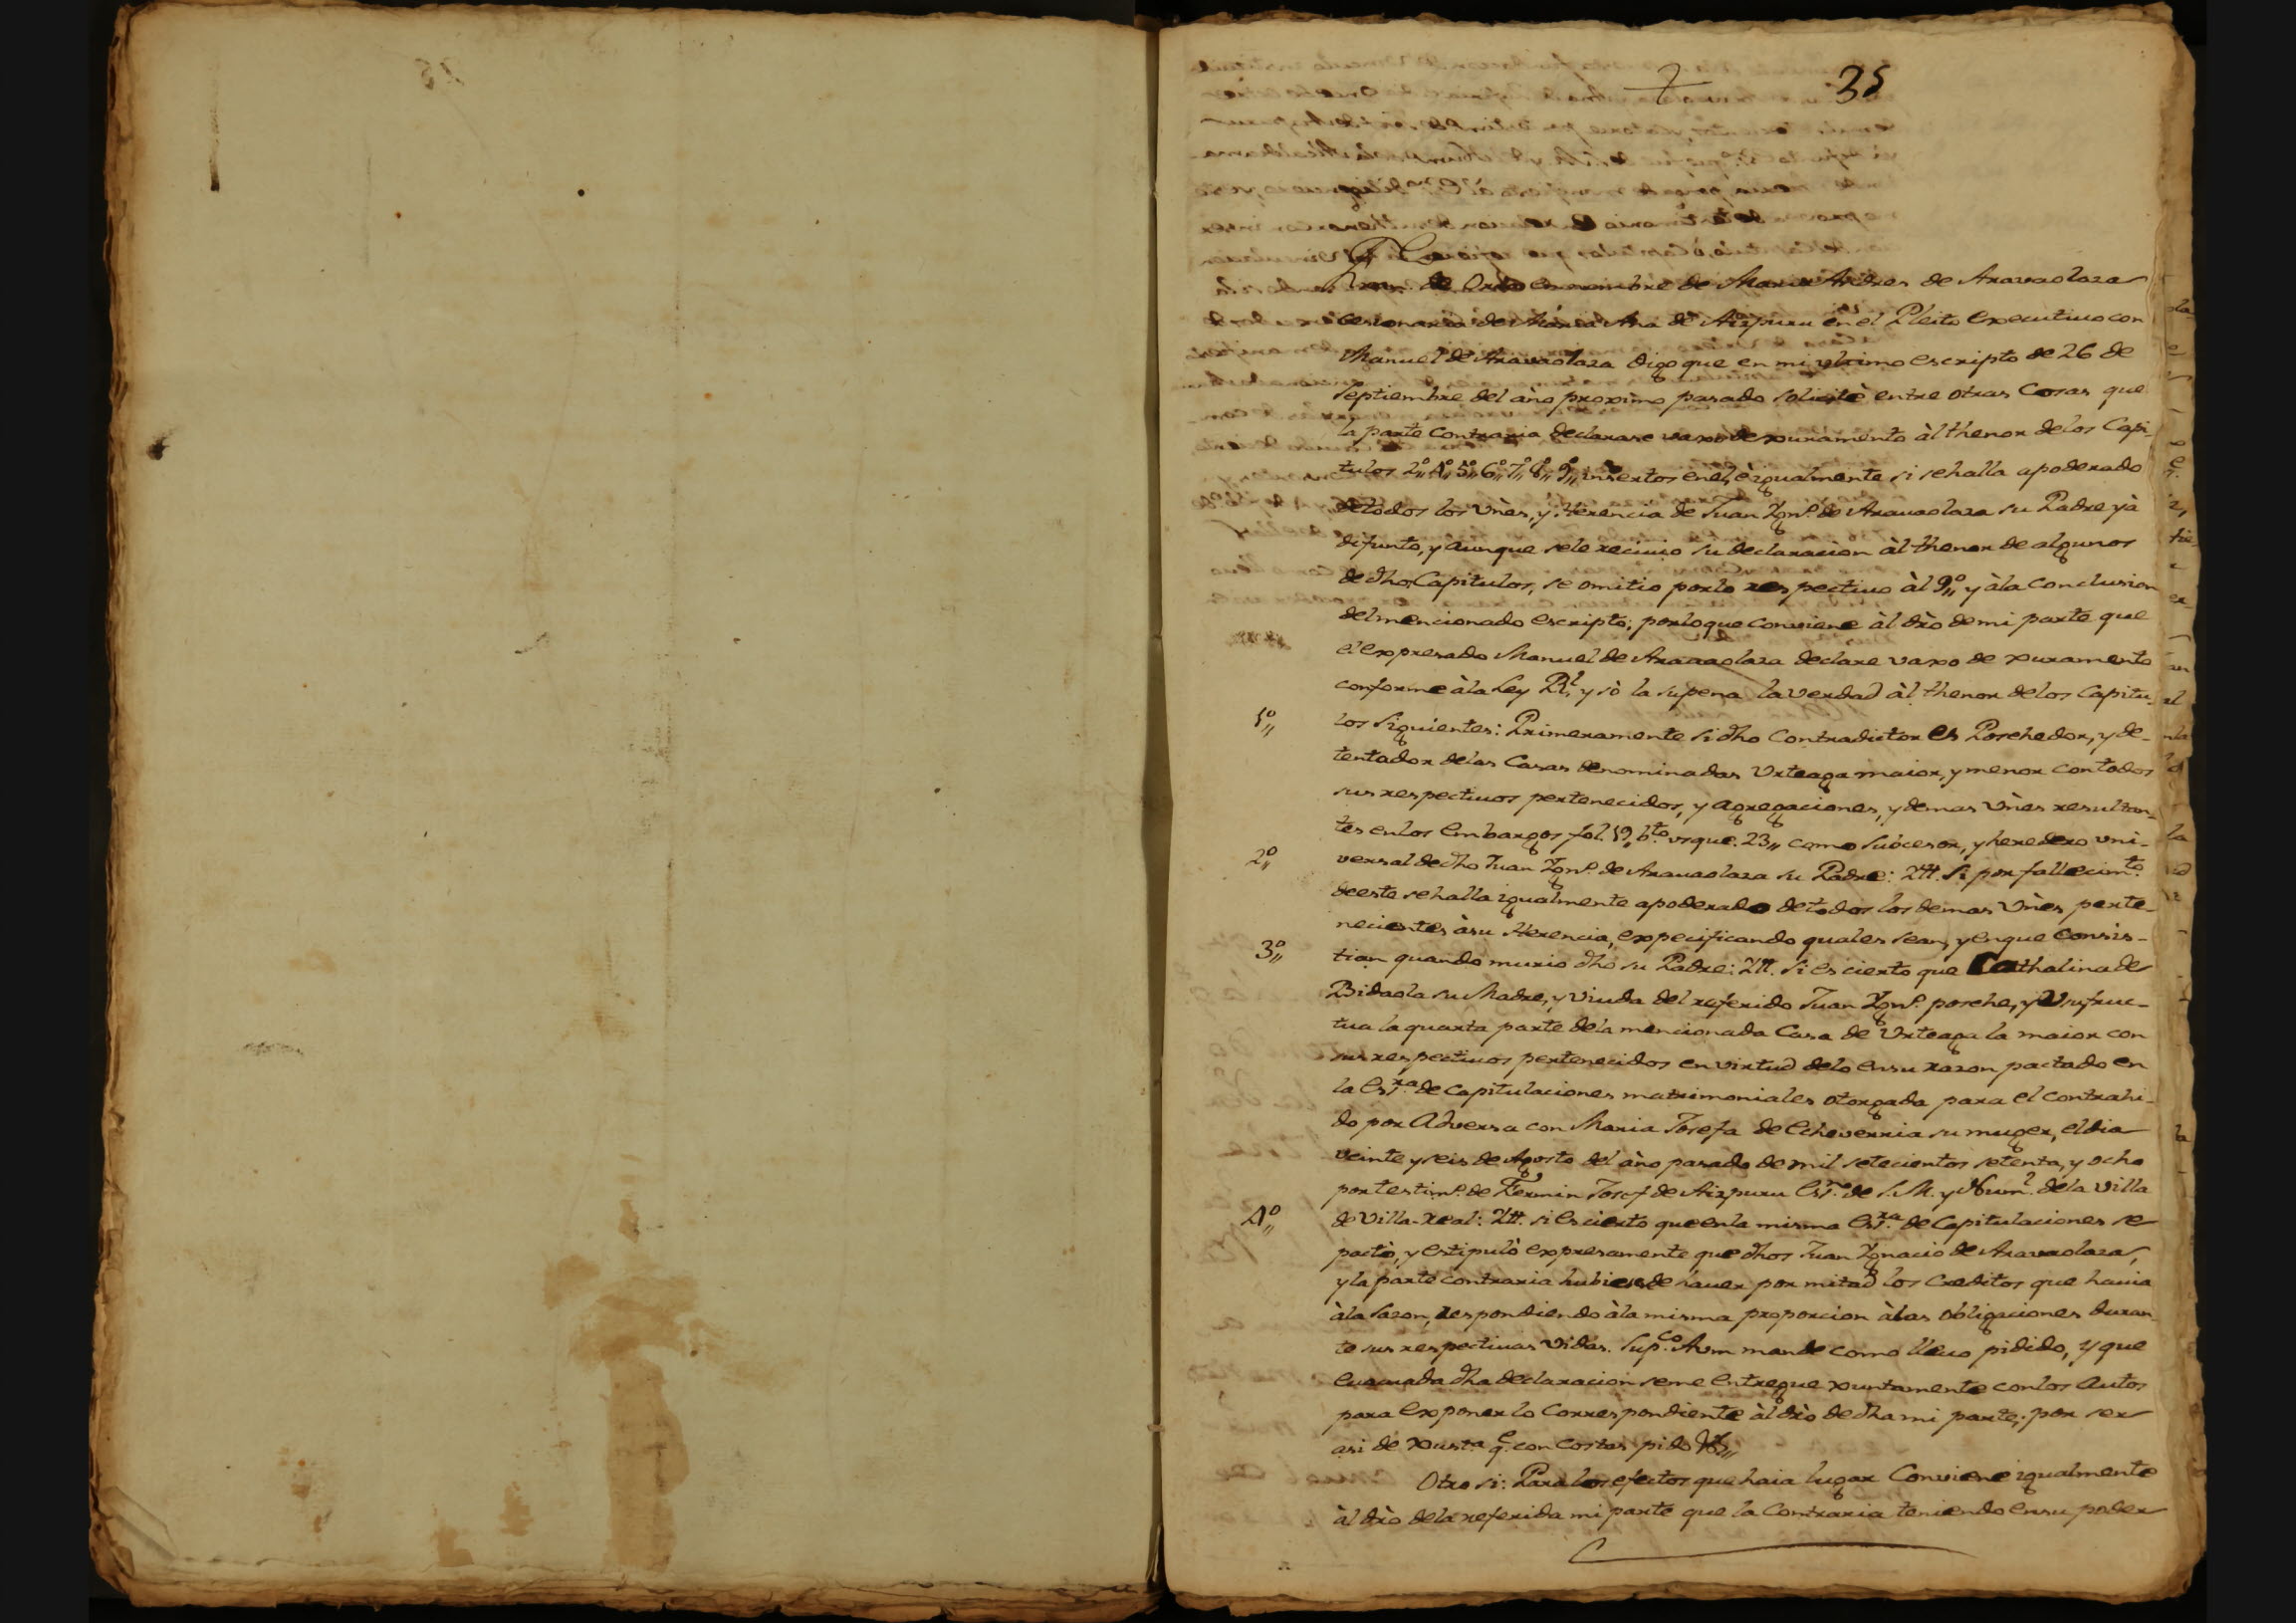 35
Juan de Orbe en nombre de Maria Andres de Aravaolaza
cesionaria de Maria Ana de Aizpuru en el Pleito executivo con
Manuel de Aravaolaza digo que en mi vltimo escripto de 26 de
Septiembre del año proximo pasado solicitè entre otras Cosas que
la parte Contraria declarase vaxo de xuramento àl thenor de los Capi-
tulos 2º,, 4º,, 5º,, 6º,, 7º,, 8º,, 9º,, insertos en el, è igualmente si se halla apoderado
de todos los vñes, y Herencia de Juan Ygnº. de Aravaolaza su Padre yà
difunto, y aunque sele recivio su declaracion àl thenor de algunos
de dhos Capitulos, se omitio por lo respectivo àl 9º,, y àla Conclusion
del mencionado escripto; por lo que conviene àl dro de mi parte que
el expresado Manuel de Aravaolaza declare vaxo de xuramento
conforme àla Ley Rl, y sò la supena la verdad àl thenor de los Capitu-
1º,, los siguientes: Primeramente si dho Contradictor es Posehedor, y de-
tentador delas Casas denominadas Vrteaga maior, y menor con todos
sus respectivos pertenecidos, y agregaciones, y demas vñes resultan-
tes en los embargos fol. 19,, bto. vsque. 23,, como Subcesor, y heredero vni-
2º,, versal de dho Juan Ygnº. de Aravaolaza su Padre: Ytt. Si por fallecimto.
de este se halla igualmente apoderado de todos los demas vñes perte-
necientes àsu Herencia, expecificando quales sean, y en que Consis-
3º,, tian quando murio dho su Padre: Ytt. Si es cierto que Cathalina de
Bidaola su Madre, y viuda del referido Juan Ygnº. posehe, y Vsufruc-
tua la quarta parte dela mencionada Casa de Vrteaga la maior con
sus respectivos pertenecidos en virtud delo en su razon pactado en
la Esra. de Capitulaciones matrimoniales otorgada para el contrahi-
do por Adversa con Maria Josefa de Echeverria su muger, el dia
veinte y seis de Agosto del año pasado de mil setecientos setenta, y ocho
por testimº. de Fermin Josef de Aizpuru Esno. de S. M. y Numl. dela villa
4º,, de Villa-Real: Ytt. si es cierto que en la misma Esra. de Capitulaciones se
pactò, y estipulò expresamente que dhos Juan Ygnacio de Aravaolaza,
y la parte contraria hubiese de haver por mitad los Creditos que havia
àla Sazon, respondiendo àla misma proporcion àlas obligaciones duran-
te sus respectivas vidas. Supco. Avm mande como llevo pidido, y que
evacuada dha declaracion seme entregue xuntamente con los Autos
para exponer lo Correspondiente àl dro de dha mi parte; por ser
asi de xusta. qe. con Costas pido Vª,,
Otro si: Para los efectos que haia lugar Conviene igualmente
àl dro dela referida mi parte que la Contraria teniendo en su poder